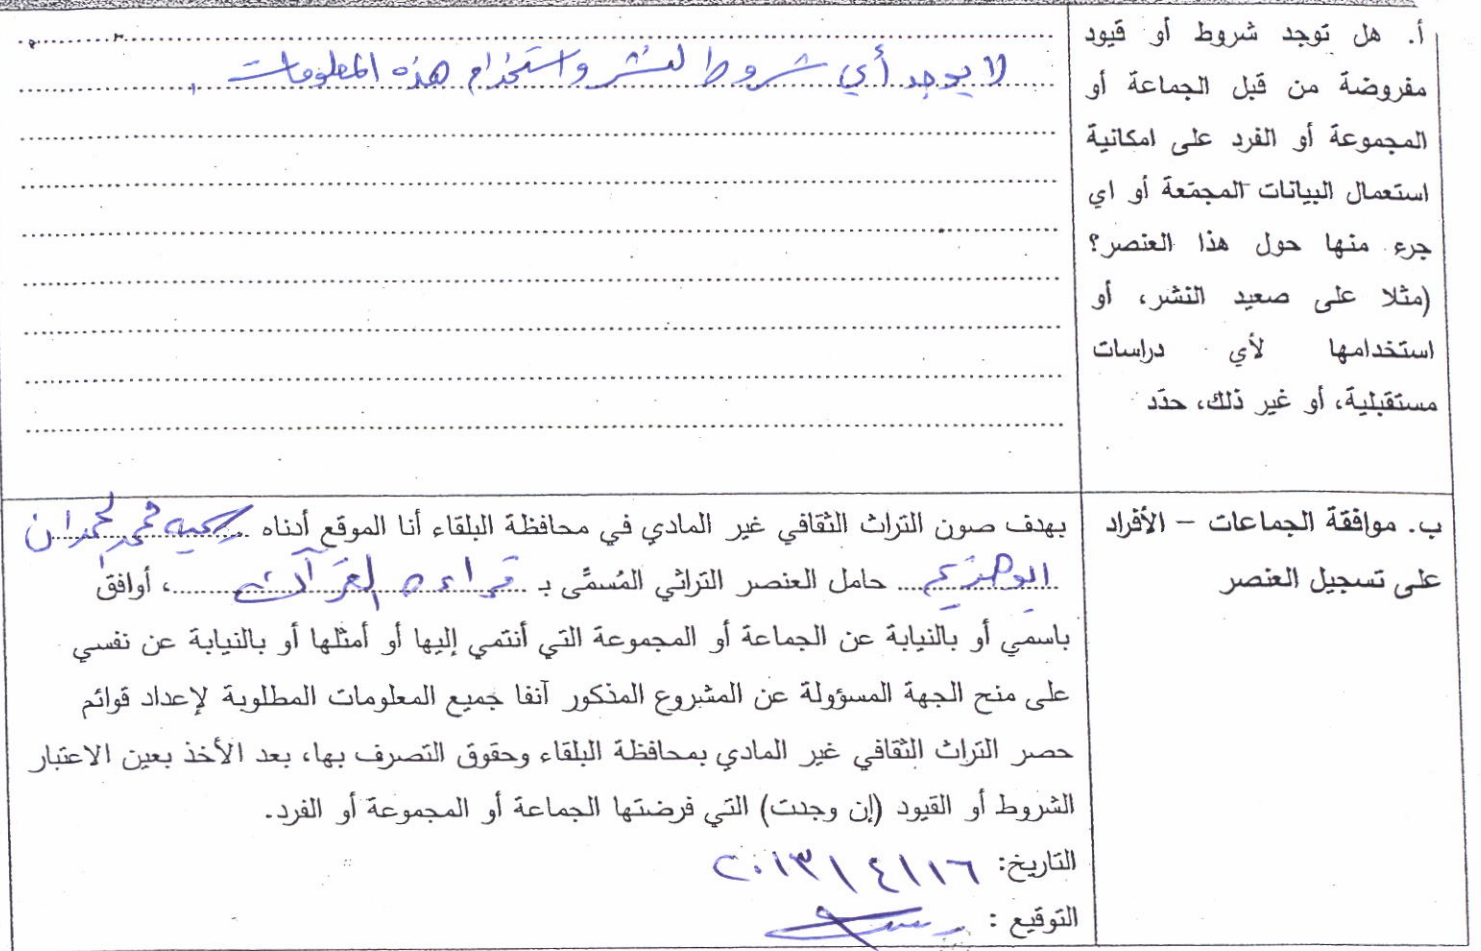 أ. هل توجد شروط أو قيود
مفروضة من قبل الجماعة أو
المجموعة أو الفرد على امكانية
استعمال البيانات المجمّعة أو اي
جرء منها حول هذا العنصر؟
(مثلا على صعيد النشر، أو
استخدامها لأي دراسات
مستقبلية، أو غير ذلك، حدّد
لا يوجد أي شروط لنشر واستخدام هذه المعلومات .
ب. موافقة الجماعات – الأفراد
على تسجيل العنصر
بهدف صون التراث الثقافي غير المادي في محافظة البلقاء أنا الموقع أدناه
حامل العنصر التراثي المُسمَّى بـ قراءه القرآن، أوافق
باسمي أو بالنيابة عن الجماعة أو المجموعة التي أنتمي إليها أو أمثلها أو بالنيابة عن نفسي
على منح الجهة المسؤولة عن المشروع المذكور آنفا جميع المعلومات المطلوبة لإعداد قوائم
حصر التراث الثقافي غير المادي بمحافظة البلقاء وحقوق التصرف بها، بعد الأخذ بعين الاعتبار
الشروط أو القيود (إن وجدت) التي فرضتها الجماعة أو المجموعة أو الفرد.
التاريخ: ١٦\٤\٢٠١٣
التوقيع :